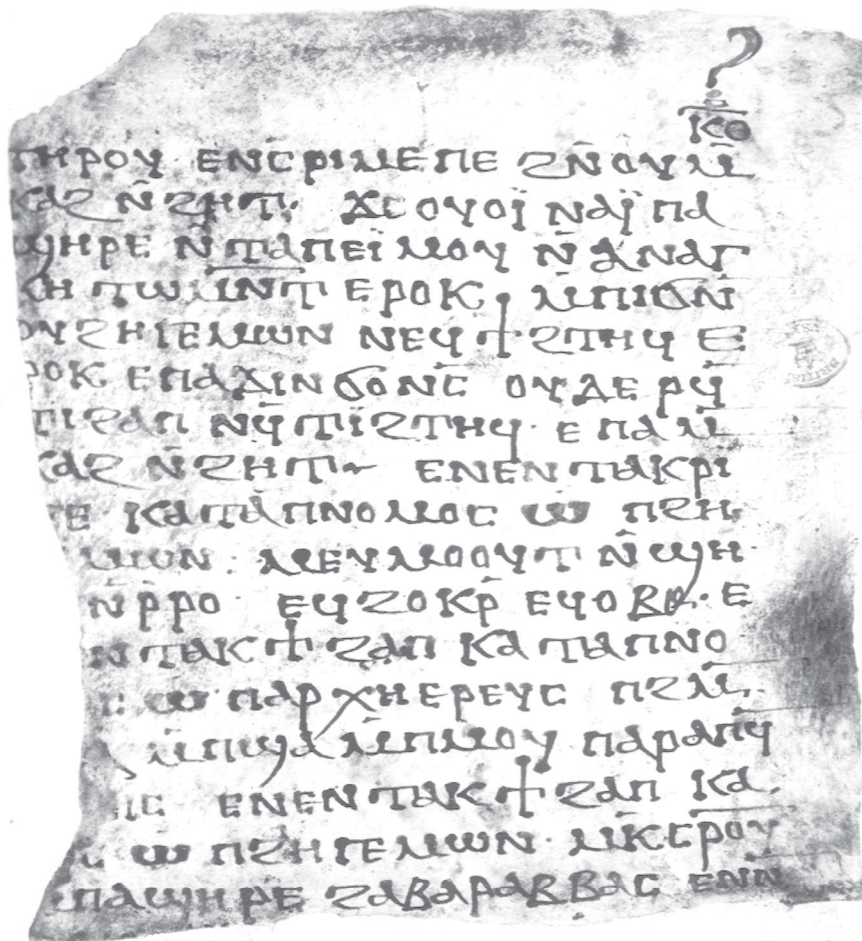 ⲕⲑ
ⲧⲏⲣⲟⲩ· ⲉⲛⲥⲣⲓⲙⲉⲡⲉ ϩⲛ̄ⲟⲩⲙ̄
ⲕⲁϩ ⲛ̄ϩⲏⲧ· ϫⲉⲟⲩⲟⲓ̈ ⲛⲁⲓ̈ ⲡⲁ
ϣⲏⲣⲉ ⲛ̄ⲧⲁⲡⲉⲓ̈ⲙⲟⲩ ⲛ̄ⲁⲛⲁⲅ
ⲕⲏ ⲧⲱⲙⲛ̄ⲧ ⲉⲣⲟⲕ· ⲙ̄ⲡⲓϭⲛ̄
ⲟⲩϩⲏⲅⲉⲙⲱⲛ ⲛⲉϥϯϩⲧⲏϥ ⲉ
ⲣⲟⲕ ⲉⲡⲁϫⲓⲛϭⲟⲛⲥ̄ ⲟⲩⲇⲉ ⲣϥ̄
ⲧⲓϩⲁⲡ ⲛϥ̄ⲧⲓ̈ϩⲧⲏϥ· ⲉⲡⲁⲙ̄
ⲕⲁϩ ⲛ̄ϩⲏⲧ ⲉⲛⲉⲛⲧⲁⲕⲣⲓ
ⲛⲉ ⲕⲁⲧⲁⲡⲛⲟⲙⲟⲥ ⲱ ⲡϩⲏ
ⲙⲱⲛ· ⲙⲉⲩⲙⲟⲟⲩⲧ ⲛ̄ϣⲏ
ⲛ̄ⲣ̄ⲣⲟ· ⲉϥϩⲟⲕⲣ̄ ⲉϥⲟⲃⲉ· ⲉ
ⲛⲧⲁⲕϯϩⲁⲡ ⲕⲁⲧⲁⲡⲛⲟ
ⲱ ⲡⲁⲣⲭⲏⲉⲣⲉⲩⲥ ⲡϩⲙ̄
ⲙ̄ⲡϣⲁ ⲙ̄ⲡⲙⲟⲩ ⲡⲁⲣⲁⲡϥ̄
ⲓⲥ ⲉⲛⲉⲛⲧⲁⲕϯϩⲁⲡ ⲕⲁ
ⲥ ⲱ ⲡϩⲏⲅⲉⲙⲱⲛ· ⲙ̄ⲕⲥ̄ⲣⲟⲩ
ⲡⲁϣⲏⲣⲉ ϩⲁⲃⲁⲣⲁⲃⲃⲁⲥ ⲉⲛⲛ